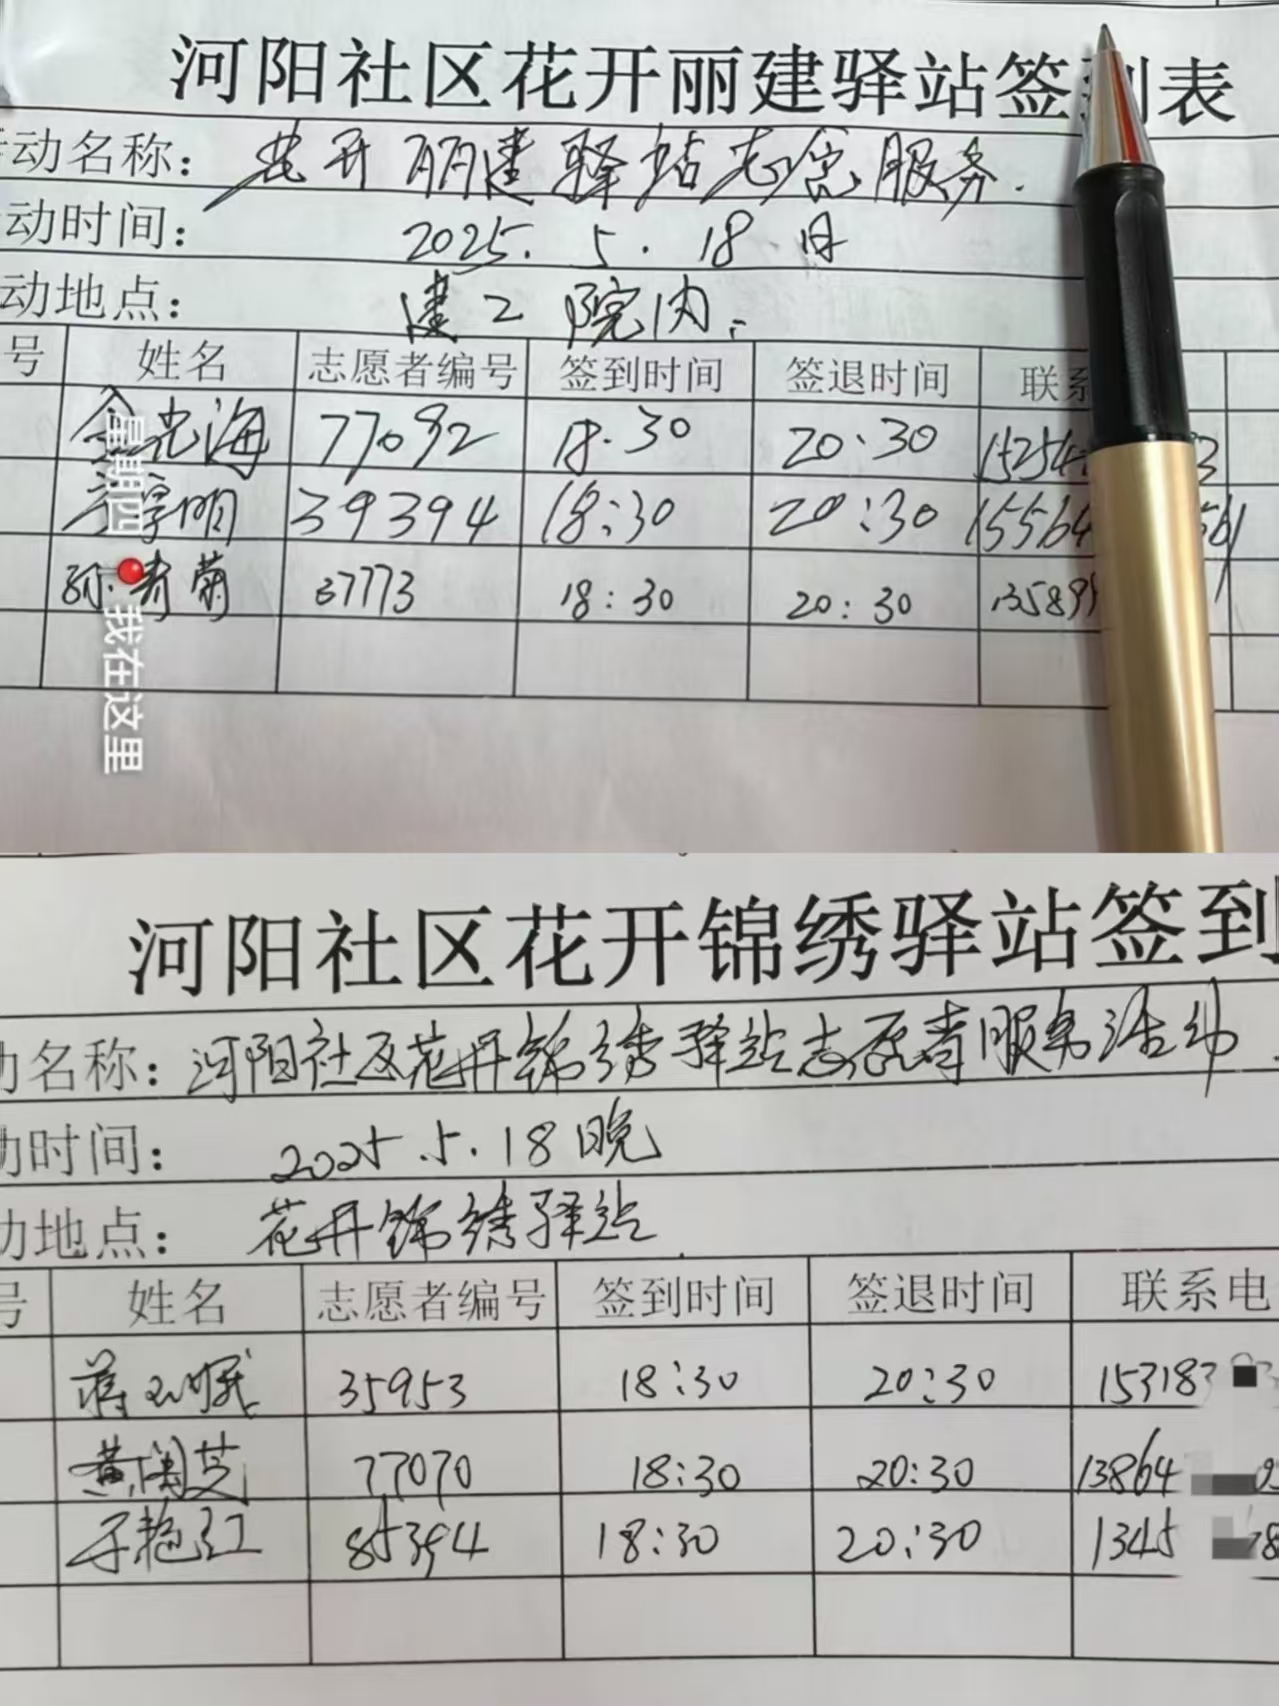 河阳社区花开丽建驿站签到表
动名称： 花开丽建驿站志愿服务.
动时间： 2025. 5. 18 日
动地点： 建工院内.
号 姓名 志愿者编号 签到时间 签退时间 联系
海 77092 18.30 20:30 15254
明 39394 18:30 20:30 15564 561
青菊 37773 18:30 20:30 13589
星期四
我在这里
河阳社区花开锦绣驿站签到
动名称： 河阳社区花开锦绣驿站志愿者服务活动.
动时间： 2025.5.18日晚
动地点： 花开锦绣驿站
号 姓名 志愿者编号 签到时间 签退时间 联系电
蒋 35953 18:30 20:30 153183
黄闺芝 77070 18:30 20:30 13864
于艳红 85394 18:30 20:30 1345 78